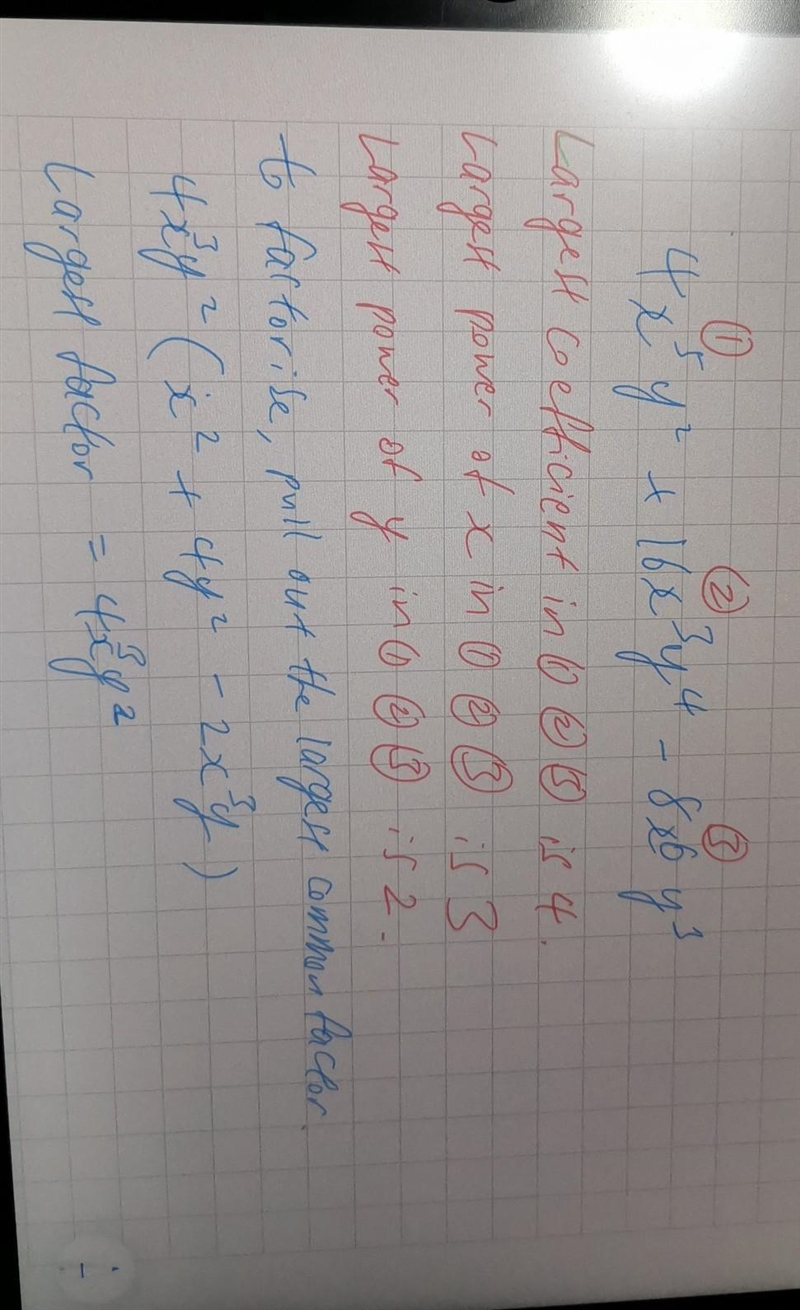 ① ② ③
4x⁵y² + 16x³y⁴ - 8x⁶y³
Largest coefficient in ① ② ③ is 4.
Largest power of x in ① ② ③ is 3
Largest power of y in ① ② ③ is 2.
to factorise, pull out the largest common factor
4x³y² (x² + 4y² - 2x³y)
Largest factor = 4x³y²